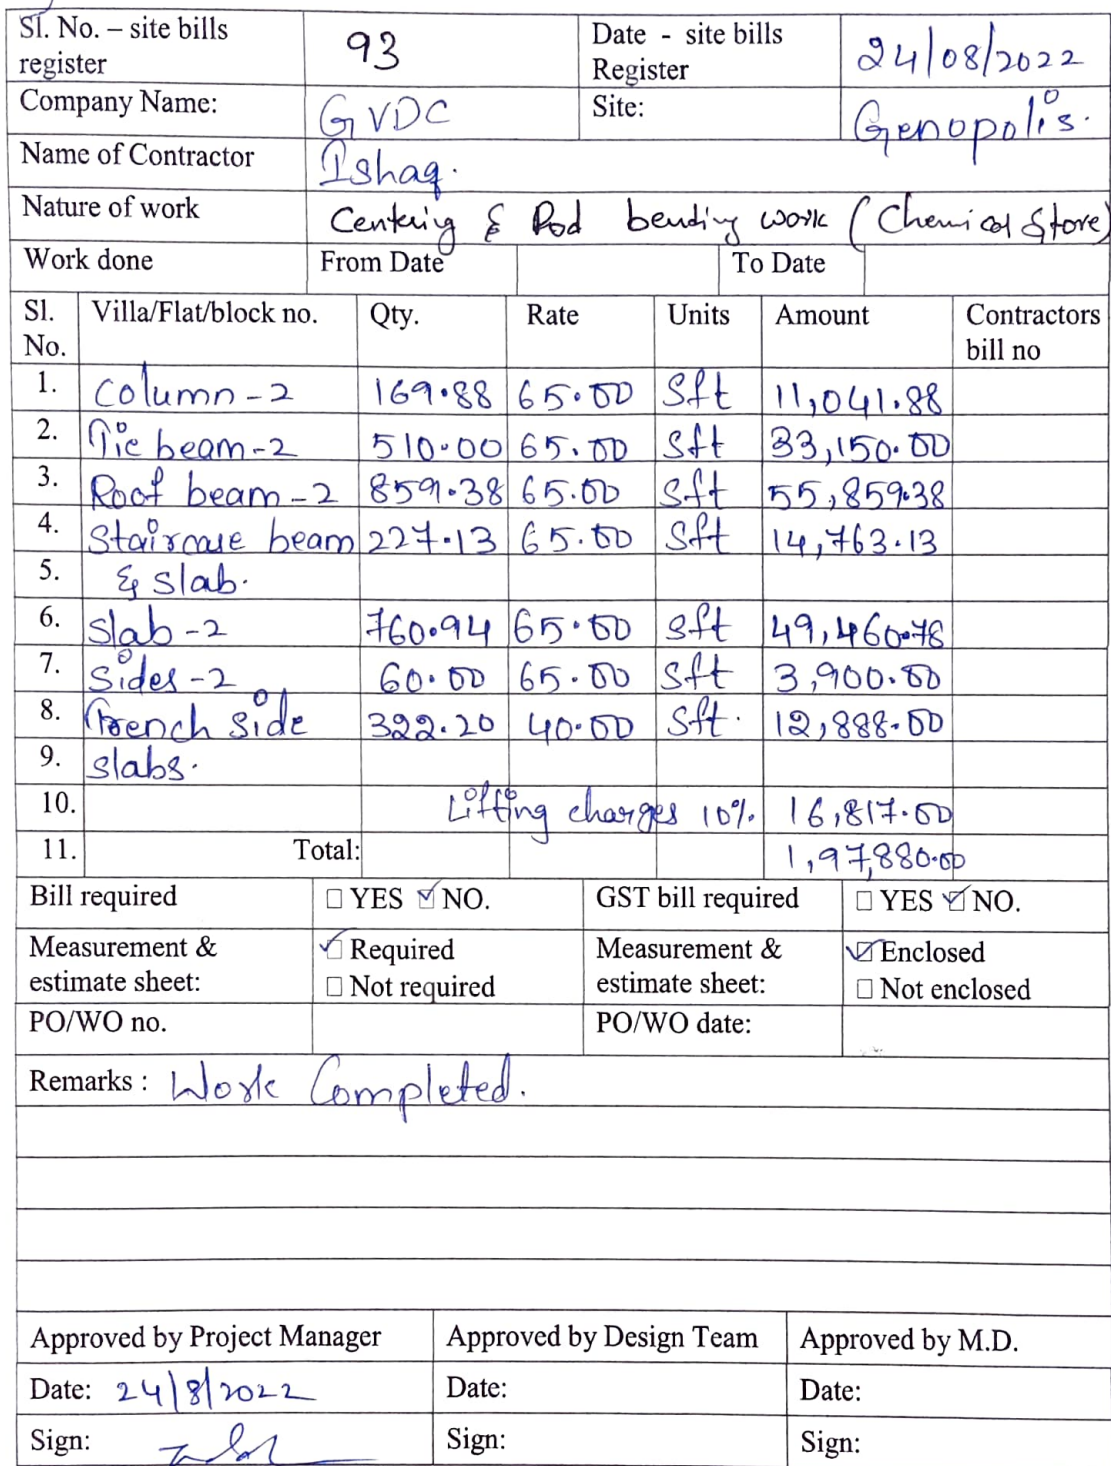 Sl. No. – site bills register 93 Date - site bills Register 24/08/2022
Company Name: GVDC Site: Genopolis.
Name of Contractor Ishaq.
Nature of work Centering & Rod bending work (Chemical Store)
Work done From Date To Date
Sl. No. Villa/Flat/block no. Qty. Rate Units Amount Contractors bill no
1. Column-2 169.88 65.00 Sft 11,041.88
2. Tie beam-2 510.00 65.00 Sft 33,150.00
3. Roof beam-2 859.38 65.00 Sft 55,859.38
4. Staircase beam 227.13 65.00 Sft 14,763.13
5. & slab.
6. Slab-2 760.94 65.00 Sft 49,460.78
7. Sides-2 60.00 65.00 Sft 3,900.00
8. Trench side 322.20 40.00 Sft. 12,888.00
9. slabs.
10. Lifting charges 10% 16,817.00
11. Total: 1,97,880.00
Bill required YES NO. GST bill required YES NO.
Measurement & estimate sheet: Required Not required Measurement & estimate sheet: Enclosed Not enclosed
PO/WO no. PO/WO date:
Remarks : Work Completed.
Approved by Project Manager Approved by Design Team Approved by M.D.
Date: 24/8/2022 Date: Date:
Sign: Sign: Sign: